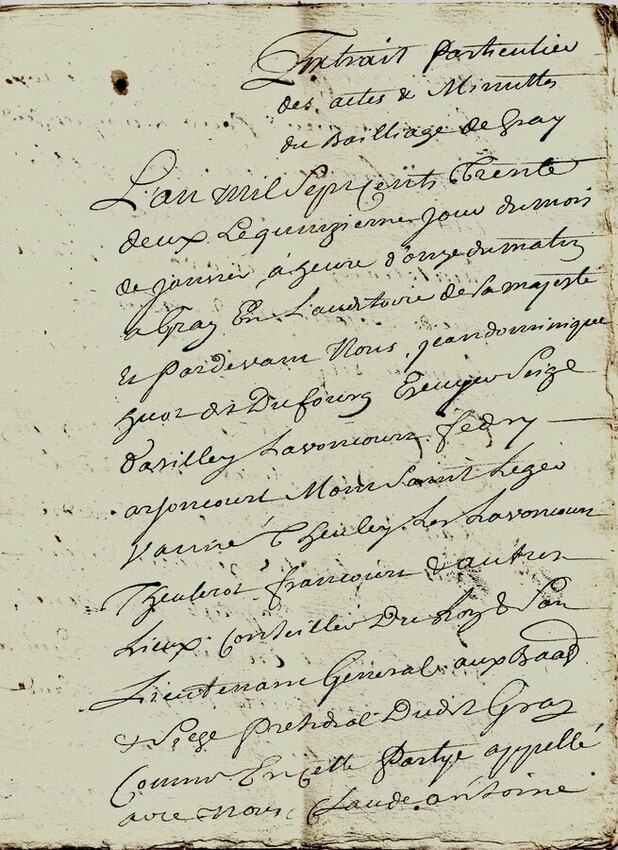 Extrait Particulier
des actes & Minuttes
du Bailliage de Gray
L'an mil Sept cents Trente
deux Le quinzieme jour du mois
de janvier, a heure d'onze du matin
a Gray En L'auditoire de Sa majesté
et Pardevant Nous, jean dominique
huot dit Dufourg Ecuyer Seig
d'avilley Lavoncourt fedry
arjoncourt Mont Saint Leger
Vanne Theuley Les Lavoncourt
Theulerot francourt & autres
Lieux Conseiller Du Roy & Son
Lieutenant General aux Baag
& Siege Presidial Dudit Gray
Comme En cette Partye appellé
avec nous Claude antoine